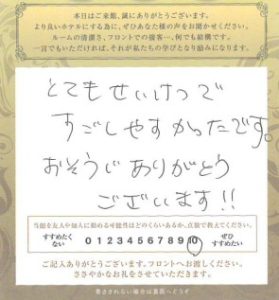 本日はご来館、誠にありがとうございます。
より良いホテルにする為に、ぜひあなた様の声をお聞かせください。
ルームの清潔さ、フロントでの接客…、何でも結構です。
一言でもいただければ、それが私たちの学びとなり励みになります。
とてもせいけつで
すごしやすかったです。
おそうじありがとう
ございます!!
当館を友人や知人に勧める可能性はどのくらいあるか、点数で教えてください。
すすめたく
ない
0 1 2 3 4 5 6 7 8 9 10
ぜひ
すすめたい
ご記入ありがとうございます。フロントへお渡しください。
ささやかなお礼をさせていただきます。